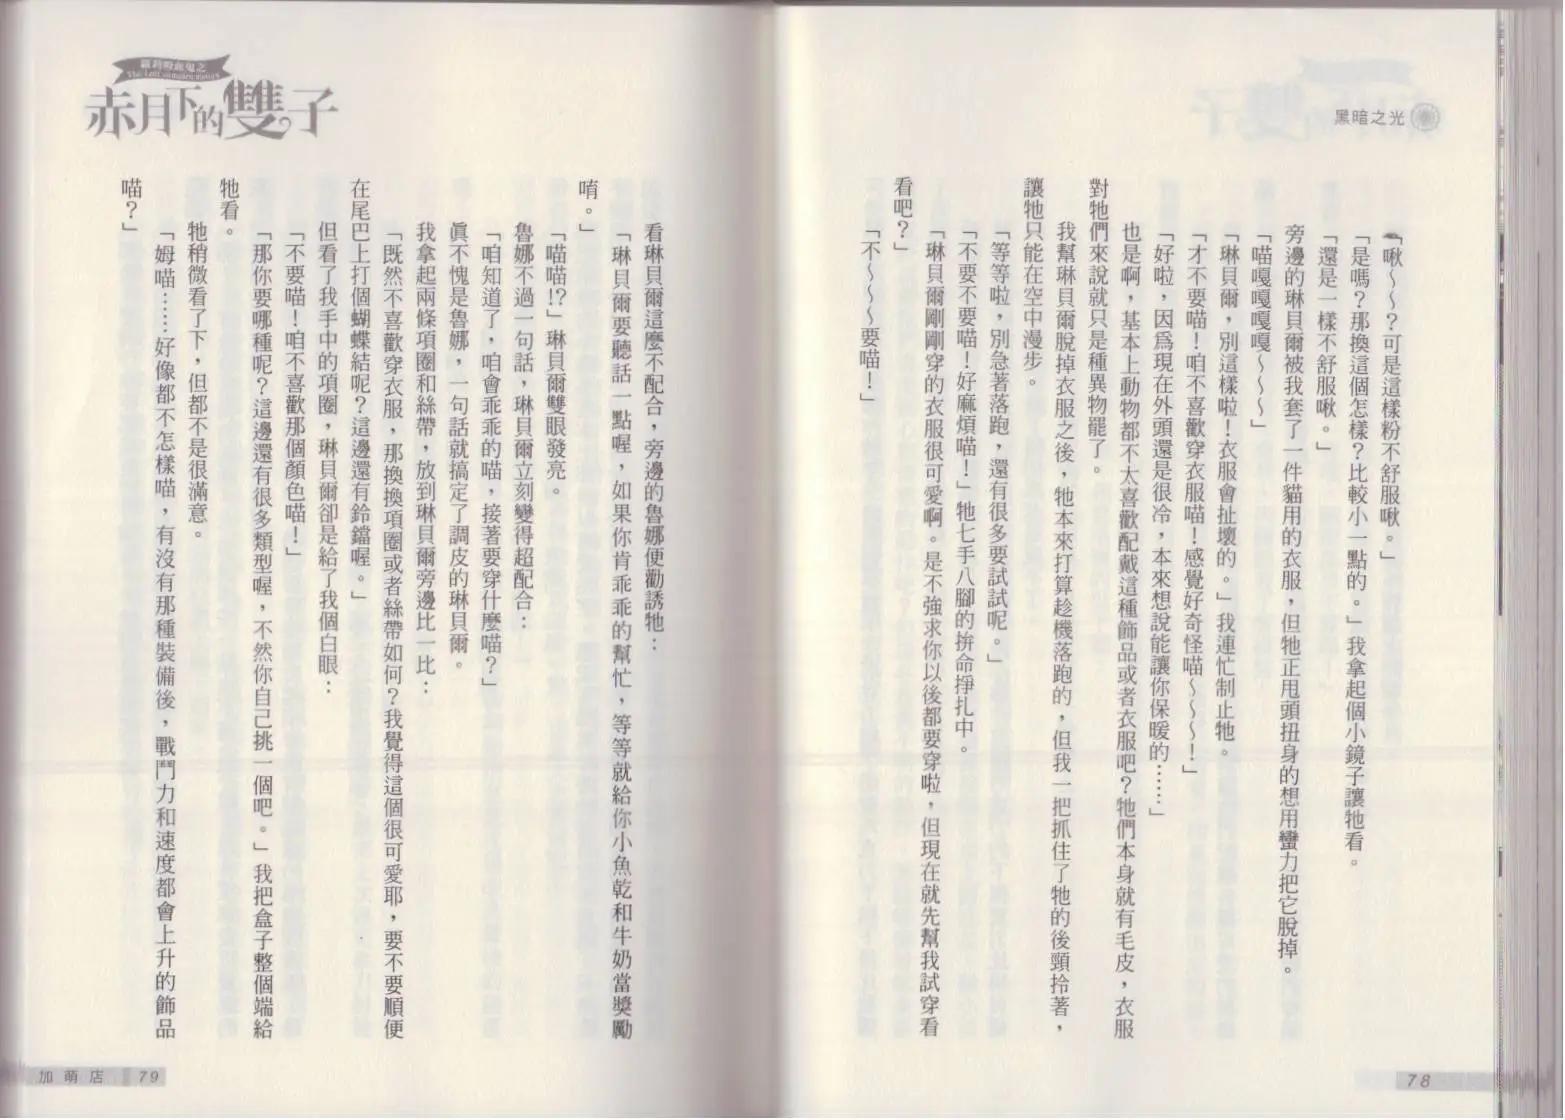 黑暗之光
「啾～～？可是這樣粉不舒服啾。」
「是嗎？那換這個怎樣？比較小一點的。」我拿起個小鏡子讓牠看。
「還是一樣不舒服啾。」
旁邊的琳貝爾被我套了一件貓用的衣服，但牠正甩頭扭身的想用蠻力把它脫掉。
「喵嘎嘎嘎嘎～～～」
「琳貝爾，別這樣啦！衣服會扯壞的。」我連忙制止牠。
「才不要喵！咱不喜歡穿衣服喵！感覺好奇怪喵～～～！」
「好啦，因為現在外頭還是很冷，本來想說能讓你保暖的……」
也是啊，基本上動物都不太喜歡配戴這種飾品或者衣服吧？牠們本身就有毛皮，衣服
對牠們來說就只是種異物罷了。
我幫琳貝爾脫掉衣服之後，牠本來打算趁機落跑的，但我一把抓住了牠的後頸拎著，
讓牠只能在空中漫步。
「等等啦，別急著落跑，還有很多要試試呢。」
「不要不要喵！好麻煩喵！」牠七手八腳的拚命掙扎中。
「琳貝爾剛剛穿的衣服很可愛啊。是不強求你以後都要穿啦，但現在就先幫我試穿看
看吧？」
「不～～～要喵！」
78
蘿莉吸血鬼之
赤月下的雙子
看琳貝爾這麼不配合，旁邊的魯娜便勸誘牠：
「琳貝爾要聽話一點喔，如果你肯乖乖的幫忙，等等就給你小魚乾和牛奶當獎勵
唷。」
「喵喵!?」琳貝爾雙眼發亮。
魯娜不過一句話，琳貝爾立刻變得超配合：
「咱知道了，咱會乖乖的喵，接著要穿什麼喵？」
真不愧是魯娜，一句話就搞定了調皮的琳貝爾。
我拿起兩條項圈和絲帶，放到琳貝爾旁邊比一比：
「既然不喜歡穿衣服，那換換項圈或者絲帶如何？我覺得這個很可愛耶，要不要順便
在尾巴上打個蝴蝶結呢？這邊還有鈴鐺喔。」
但看了我手中的項圈，琳貝爾卻是給了我個白眼：
「不要喵！咱不喜歡那個顏色喵！」
「那你要哪種呢？這邊還有很多類型喔，不然你自己挑一個吧。」我把盒子整個端給
牠看。
牠稍微看了下，但都不是很滿意。
「姆喵……好像都不怎樣喵，有沒有那種裝備後，戰鬥力和速度都會上升的飾品
喵？」
加萌店 79